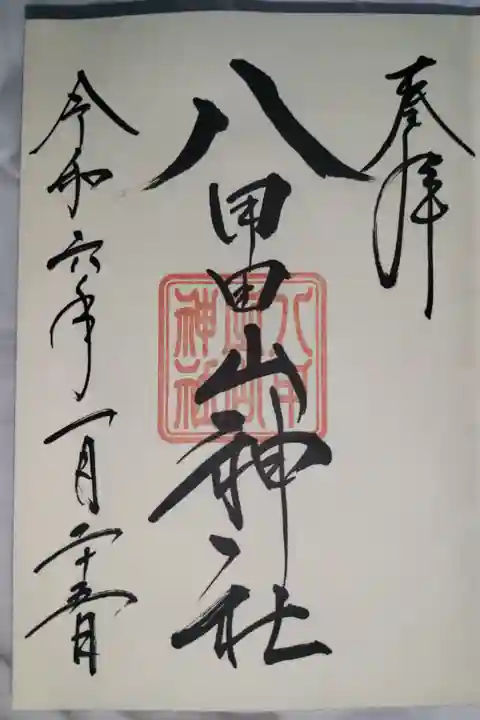 奉拝
八甲田山神社
八甲田山神社
令和六年一月二十五日